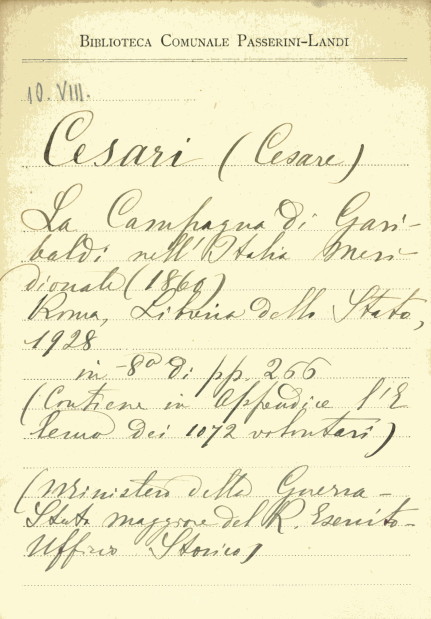 BIBLIOTECA COMUNALE PASSERINI-LANDI
10. VIII.
Cesari (Cesare)
La Campagna di Gari-
baldi nell'Italia Meri-
dionale (1860)
Roma, Libreria dello Stato,
1928
in-8º di pp. 266
(Contiene in Appendice l'E
lenco dei 1072 volontari)
(Ministero della Guerra -
Stato maggiore del R. Esercito -
Ufficio Storico)